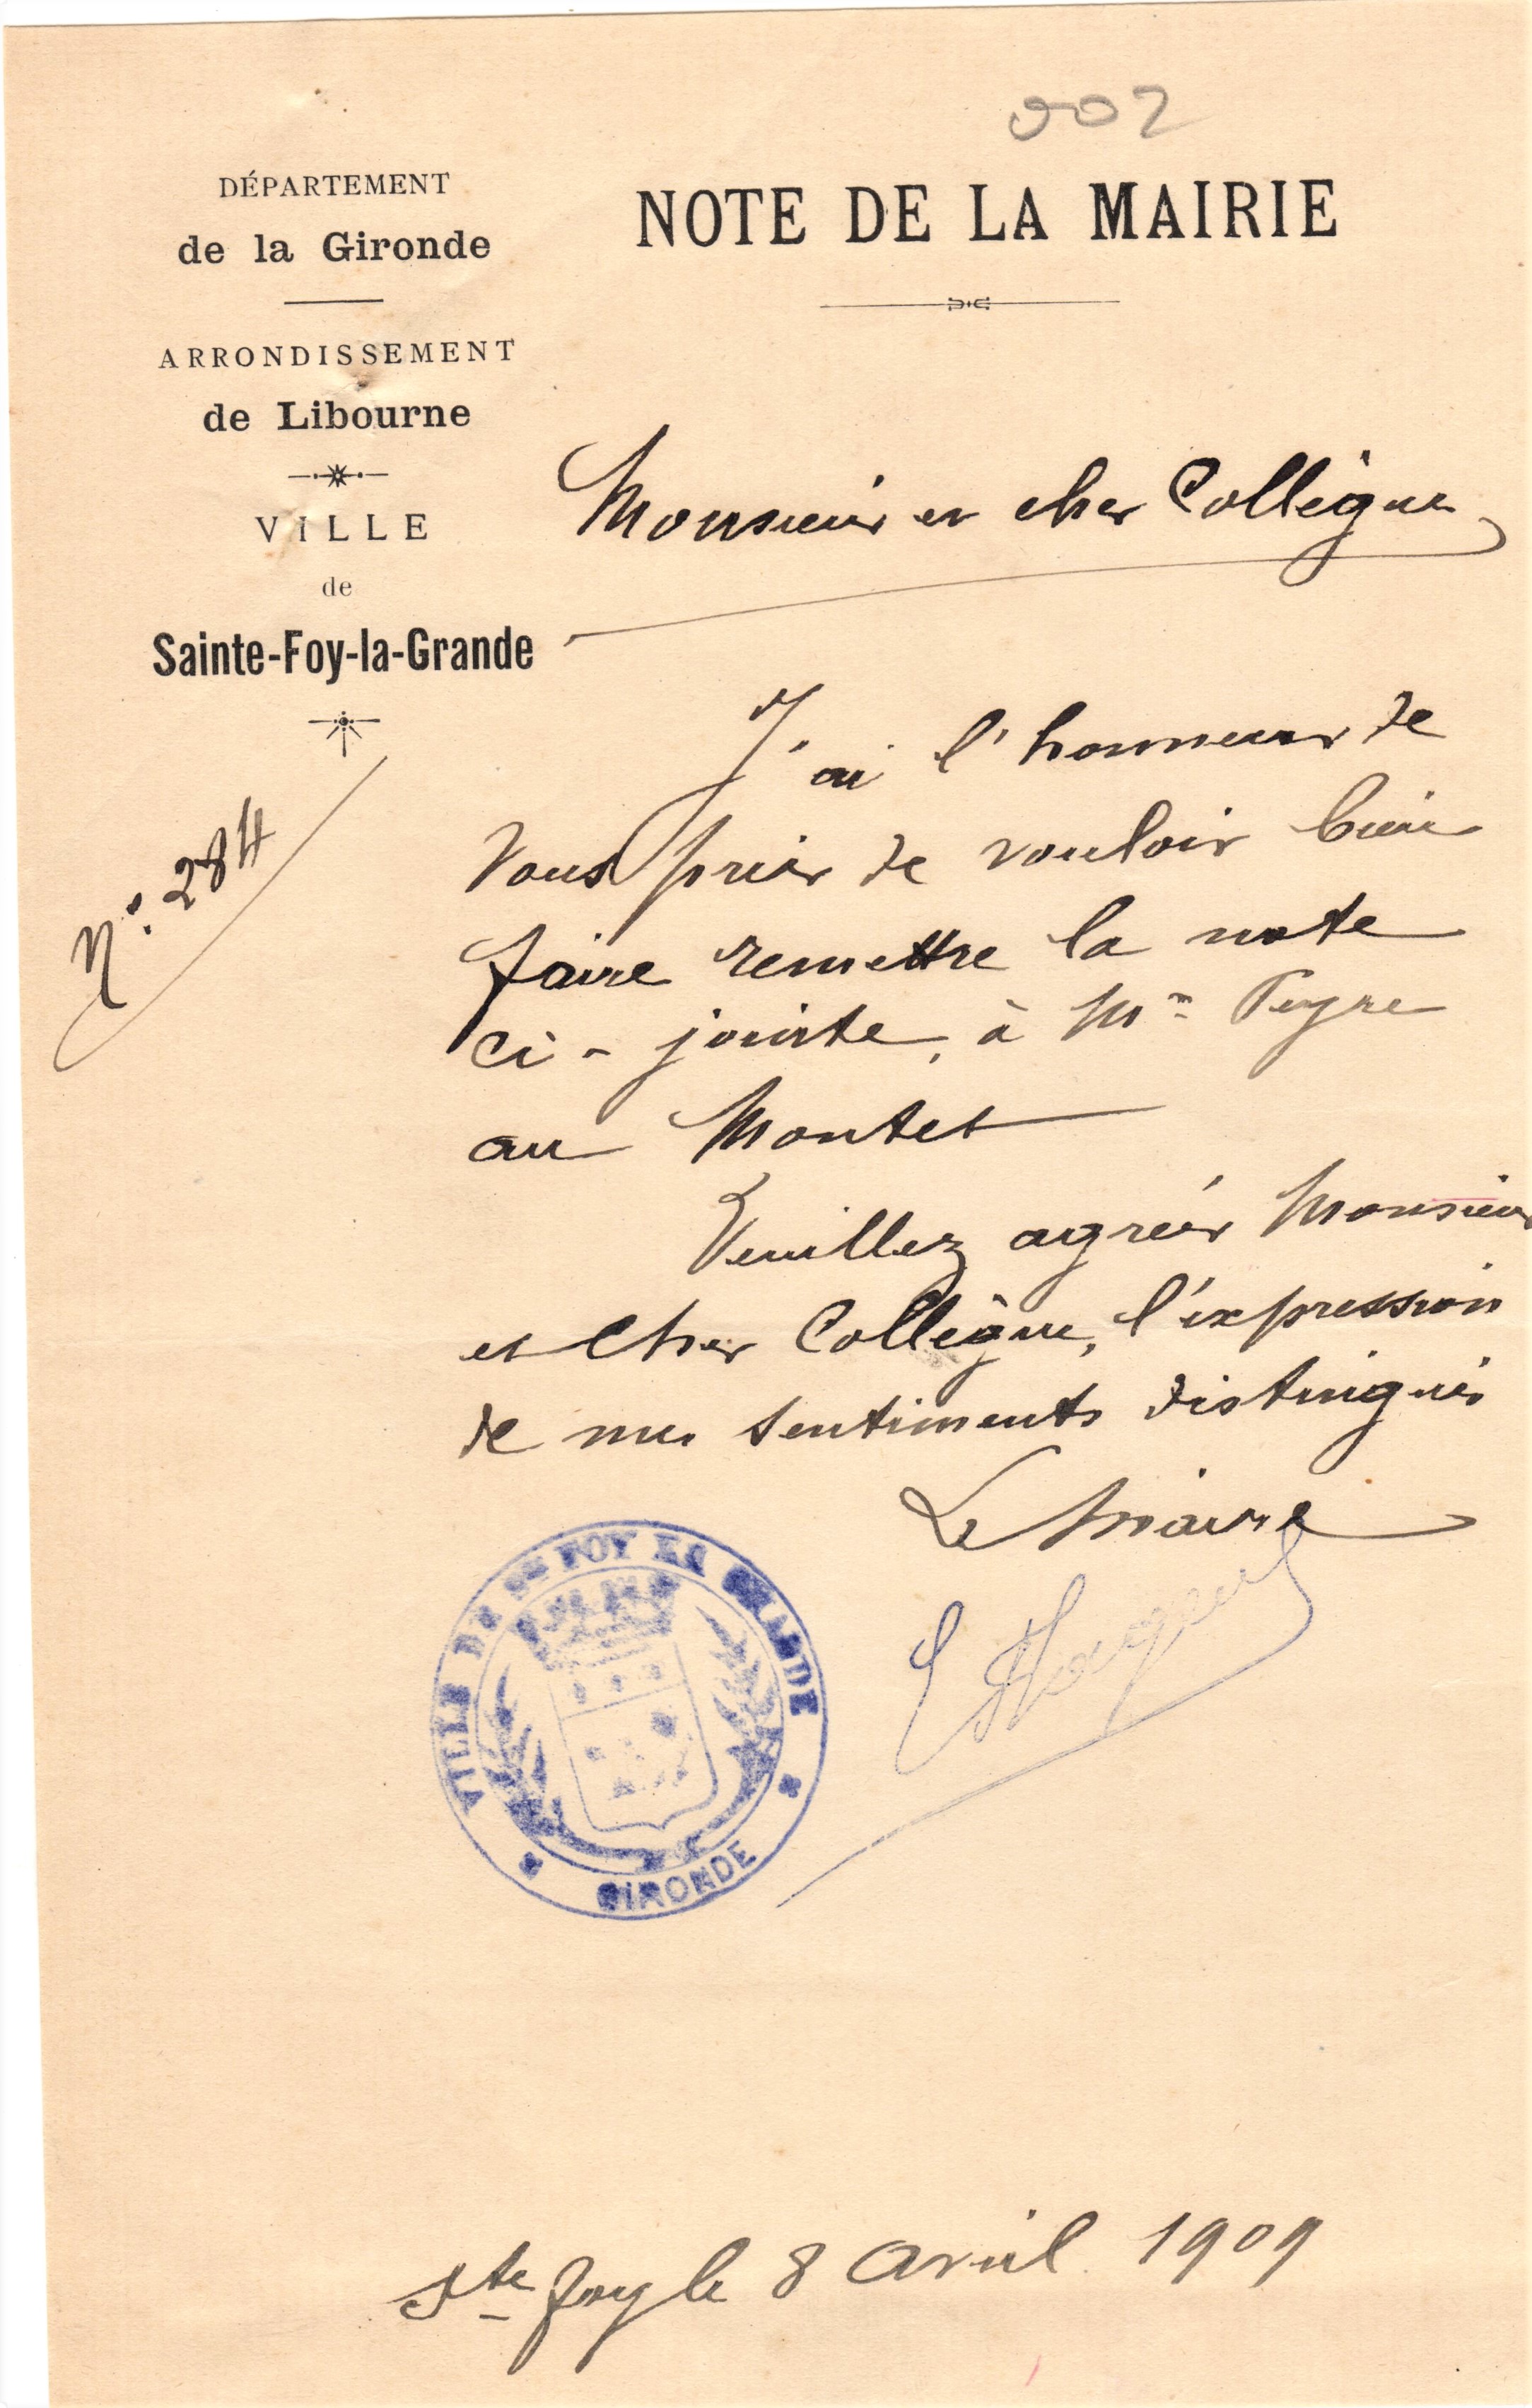 002
DÉPARTEMENT
de la Gironde
ARRONDISSEMENT
de Libourne
VILLE
de
Sainte-Foy-la-Grande
N° 284
NOTE DE LA MAIRIE
Monsieur et cher Collègue
J'ai l'honneur de
vous prier de vouloir bien
faire remettre la note
ci-jointe, à Mr Peyre
au Montet
Veuillez agréer Monsieur
et Cher Collègue, l'expression
de mes sentiments distingués
Le Maire
VILLE DE Ste FOY LA GRANDE
GIRONDE
Ste Foy le 8 Avril 1909